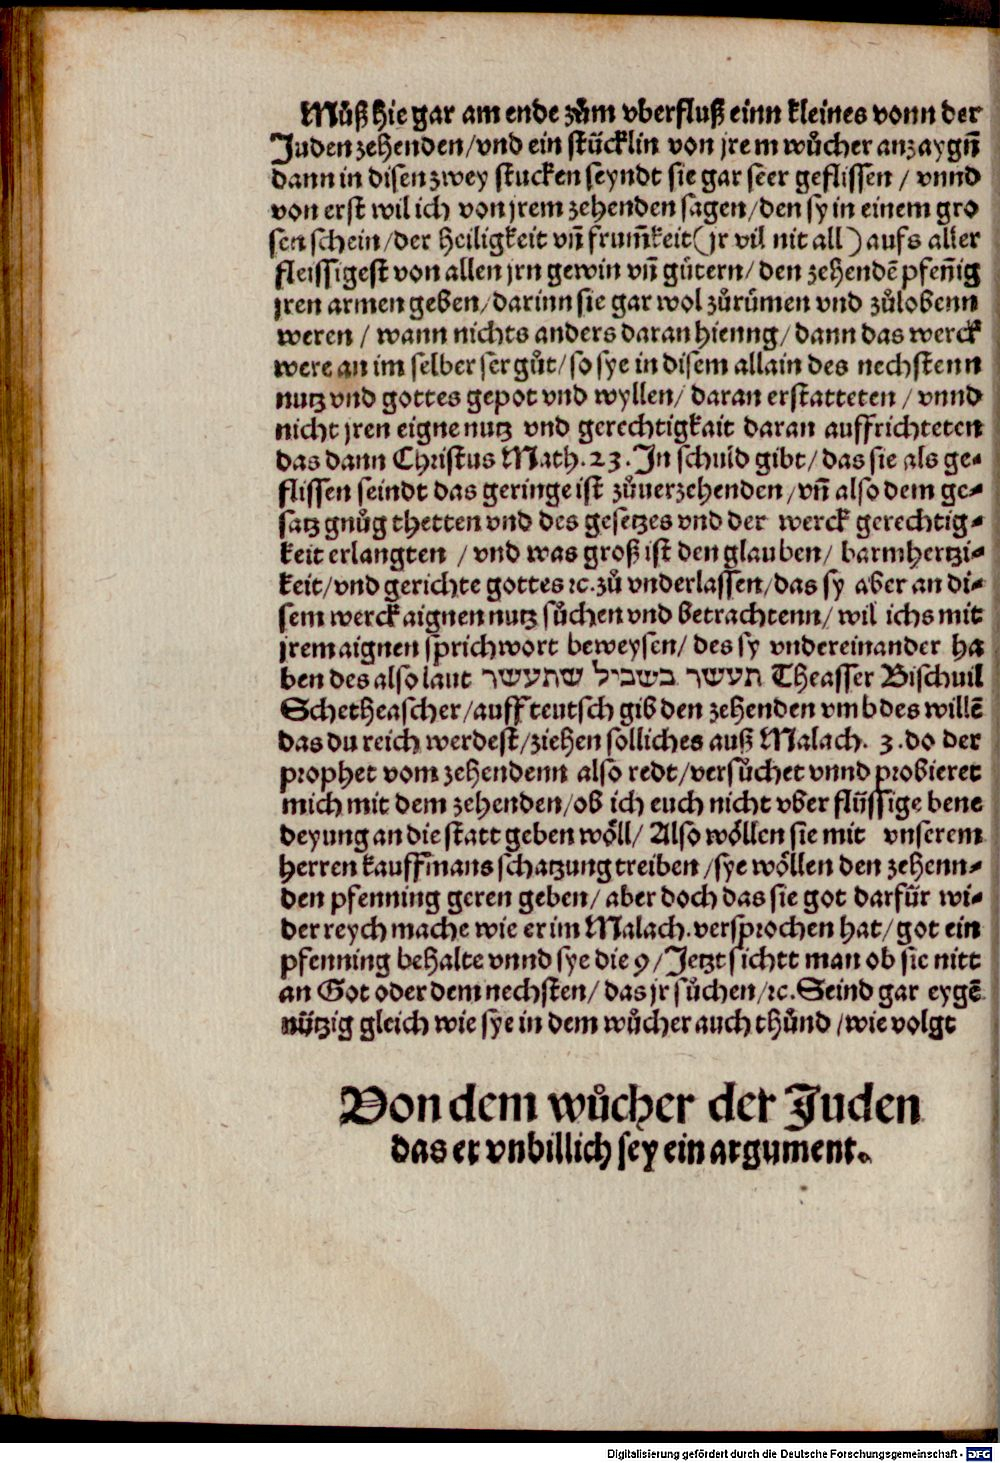 Můß hie gar am ende zům vberfluß einn kleines vonn der
Juden zehenden/vnd ein stücklin von jrem wůcher anzaygñ
dann in disen zwey stucken seyndt sie gar seer geflissen / vnnd
von erst wil ich von jrem zehenden sagen/den sy in einem gro
sen schein/der heiligkeit vñ frum̃keit(jr vil nit all) aufs aller
fleissigest von allen jrn gewin vñ gütern/den zehendẽ pfeñig
jren armen geben/darinn sie gar wol zůrümen vnd zůlobenn
weren / wann nichts anders daran hienng/dann das werck
were an im selber ser gůt/so sye in disem allain des nechstenn
nutz vnd gottes gepot vnd wyllen/ daran erstatteten / vnnd
nicht jren eigne nutz vnd gerechtigkait daran auffrichteten
das dann Christus Math.23.In schuld gibt/das sie als ge⸗
flissen seindt das geringe ist zůuerzehenden/vñ also dem ge⸗
satz gnůg thetten vnd des gesetzes vnd der werck gerechtig⸗
keit erlangten /vnd was groß ist den glauben/ barmhertzi⸗
keit/vnd gerichte gottes ⁊c.zů vnderlassen/das sy aber an di⸗
sem werck aignen nutz sůchen vnd betrachtenn/wil ichs mit
jrem aignen sprichwort beweysen/des sy vndereinander ha
ben des also laut תעשר בשביל שתעשר Theasser Bischuil
Schetheascher/auff teutsch gib den zehenden vmb des willẽ
das du reich werdest/ziehen solliches auß Malach. 3.do der
prophet vom zehendenn also redt/versůchet vnnd probieret
mich mit dem zehenden/ob ich euch nicht vber flüssige bene
deyung an die statt geben wöll/ Also wöllen sie mit vnserem
herren kauffmans schatzung treiben/sye wöllen den zehenn⸗
den pfenning geren geben/aber doch das sie got darfür wi⸗
der reych mache wie er im Malach.versprochen hat/got ein
pfenning behalte vnnd sye die 9/Jetzt sichtt man ob sie nitt
an Got oder dem nechsten/das jr sůchen/⁊c.Seind gar eygẽ
nützig gleich wie sye in dem wůcher auch thůnd/wie volgt
Von dem wůcher der Juden
das er vnbillich sey ein argument.
Digitalisierung gefördert durch die Deutsche Forschungsgemeinschaft - DFG